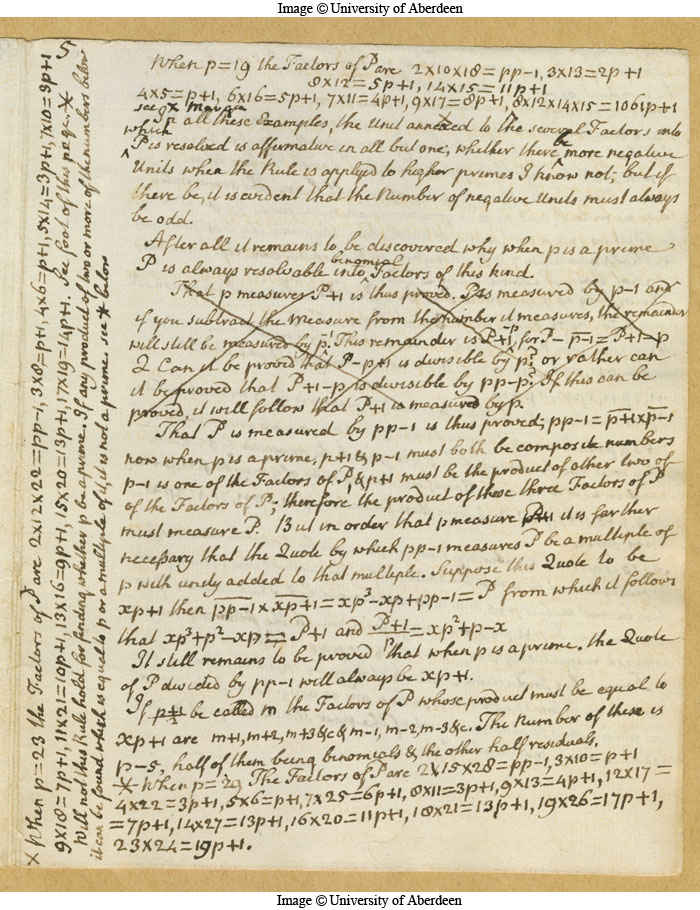 Image © University of Aberdeen
When p=19 the Factors of P are 2x10x18=pp-1, 3x13=2p+1
8x12=5p+1, 14x15=11p+1
4x5=p+1, 6x16=5p+1, 7x11=4p+1, 9x17=8p+1, 8x12x14x15=1061p+1
see x margin
In all these Examples, the Unit annexed to the several Factors into
which
P is resolved is affirmative in all but one, whether there be more negative
Units when the Rule is applyed to higher primes I know not; but if
there be, it is evident that the Number of negative Units must always
be odd.
After all it remains to be discovered why when p is a prime
P is always resolvable into binomial Factors of this kind.
That p measures P+1 is thus proved. P is measured by p-1 and
if you subtract the Measure from the number it measures, the remainder
will still be measured by p-1. This remainder is P+1-p, for P-p-1=P+1-p
Q Can it be proved that P-p+1 is divisible by p? or rather can
it be proved that P+1-p is divisible by pp-p? If this can be
proved, it will follow that P+1 is measured by p.
That P is measured by pp-1 is thus proved; pp-1=p+1xp-1
now when p is a prime, p+1 & p-1 must both be composite numbers
p-1 is one of the Factors of P, & p+1 must be the product of other two of
of the Factors of P; therefore the product of these three Factors of P
must measure P. But in order that p measure P+1 it is farther
necessary that the Quote by which pp-1 measures P be a multiple of
p with unity added to that multiple. Suppose this Quote to be
xp+1 then pp-1 x xp+1=xp³-xp+pp-1=P from which it follows
that xp³+p²-xp=P+1 and P+1/p=xp²+p-x
It still remains to be proved that when p is a prime, the Quote
of P divided by pp-1 will always be xp+1.
If p±1/2 be called m the Factors of P whose product must be equal to
xp+1 are m+1, m+2, m+3&c & m-1, m-2, m-3&c. The number of these is
p-5, half of them being binomials & the other half residuals.
x When p=29 The Factors of P are 2x15x28=pp-1, 3x10=p+1
4x22=3p+1, 5x6=p+1, 7x25=6p+1, 8x11=3p+1, 9x13=4p+1, 12x17=
=7p+1, 14x27=13p+1, 16x20=11p+1, 18x21=13p+1, 19x26=17p+1,
23x24=19p+1.
5
x When p=23 the Factors of P are 2x12x22=pp-1, 3x8=p+1, 4x6=p+1, 5x14=3p+1, 7x10=3p+1
9x18=7p+1, 11x21=10p+1, 13x16=9p+1, 15x20=13p+1, 17x19=14p+1. See foot of this page. x
Will not this Rule hold for finding whether p be a prime. If any product of two or more of the numbers below
it can be found which is equal to p or a multiple of it, it is not a prime. see x below
Image © University of Aberdeen